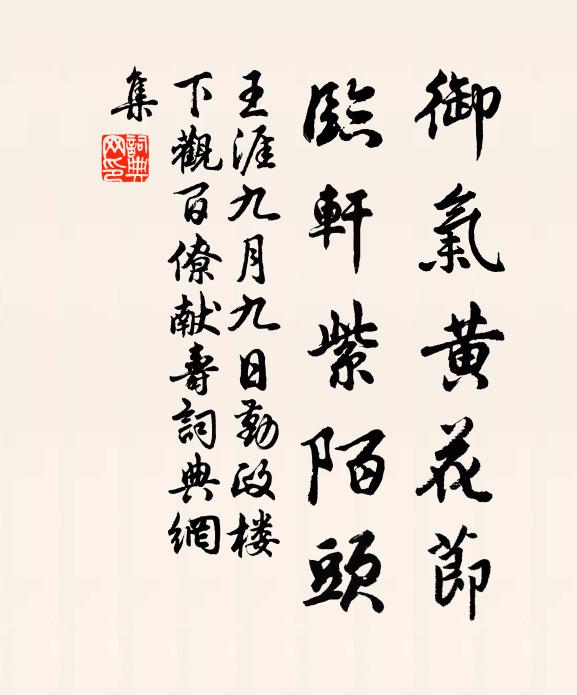 御氣黄花節
臨軒紫陌頭
王涯九月九日勤政楼
下觀百僚献壽詞典網
集
詞典網印